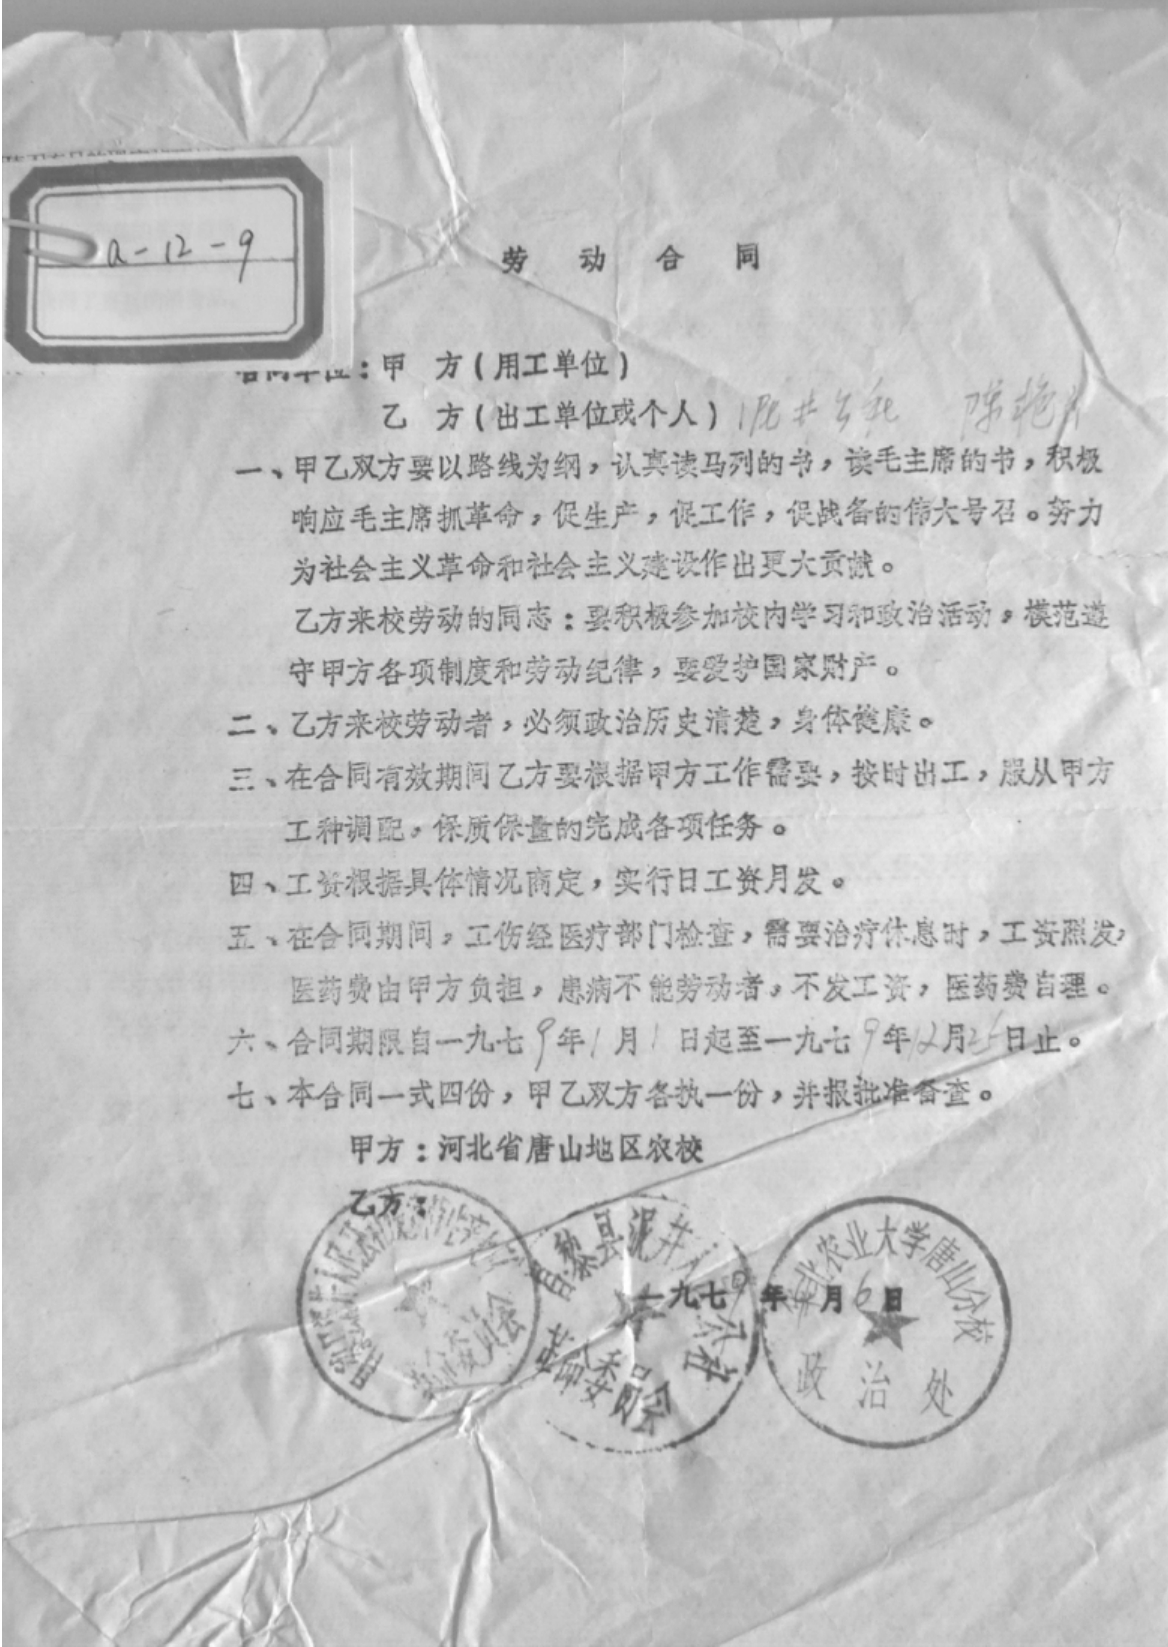 a-12-9
劳动合同
合同单位：甲 方（用工单位）
乙 方（出工单位或个人）泥井公社 陈艳
一、甲乙双方要以路线为纲，认真读马列的书，读毛主席的书，积极
响应毛主席抓革命，促生产，促工作，促战备的伟大号召。努力
为社会主义革命和社会主义建设作出更大贡献。
乙方来校劳动的同志：要积极参加校内学习和政治活动，模范遵
守甲方各项制度和劳动纪律，要爱护国家财产。
二、乙方来校劳动者，必须政治历史清楚，身体健康。
三、在合同有效期间乙方要根据甲方工作需要，按时出工，服从甲方
工种调配，保质保量的完成各项任务。
四、工资根据具体情况商定，实行日工资月发。
五、在合同期间，工伤经医疗部门检查，需要治疗休息时，工资照发，
医药费由甲方负担，患病不能劳动者，不发工资，医药费自理。
六、合同期限自一九七9年1月1日起至一九七9年12月25日止。
七、本合同一式四份，甲乙双方各执一份，并报批准备查。
甲方：河北省唐山地区农校
乙方：
一九七9年 月6日
昌黎县泥井人公社
革命委员会
革命委员会
华北农业大学唐山分校
政治处